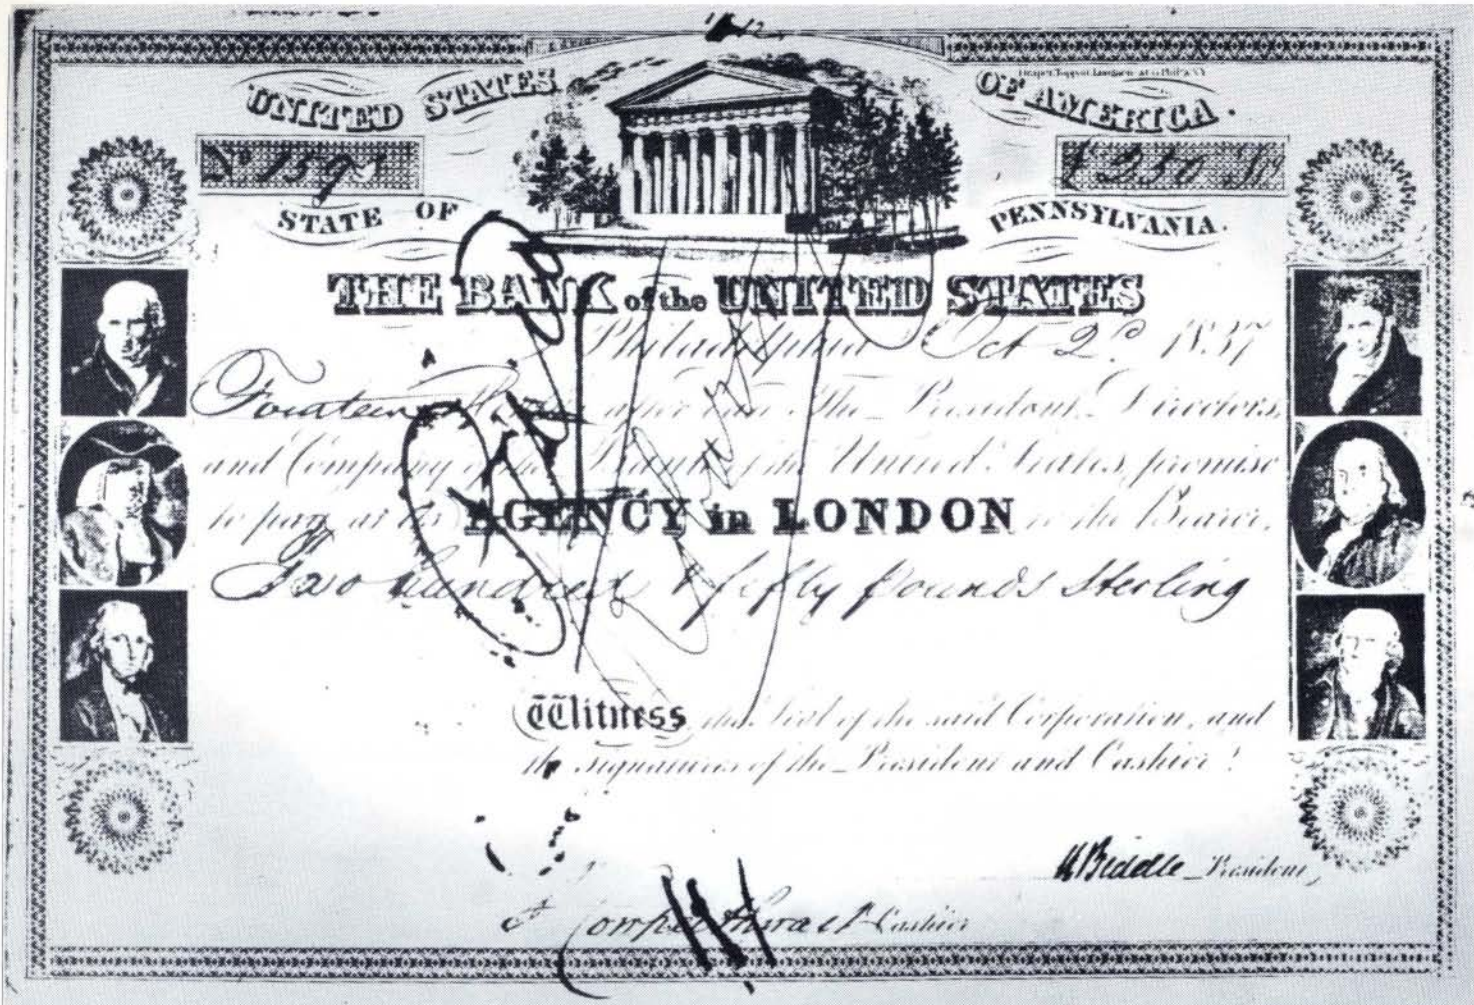 UNITED STATES OF AMERICA.
STATE OF PENNSYLVANIA.
THE BANK of the UNITED STATES
Philadelphia Oct 2d. 1837
Fourteen after date The President, Directors,
and Company of the Bank of the United States, promise
to pay at its AGENCY in LONDON to the Bearer,
Two hundred & fifty pounds Sterling
Witness the Seal of the said Corporation, and
the signatures of the President and Cashier.
N Biddle President
Cowperthwait Cashier